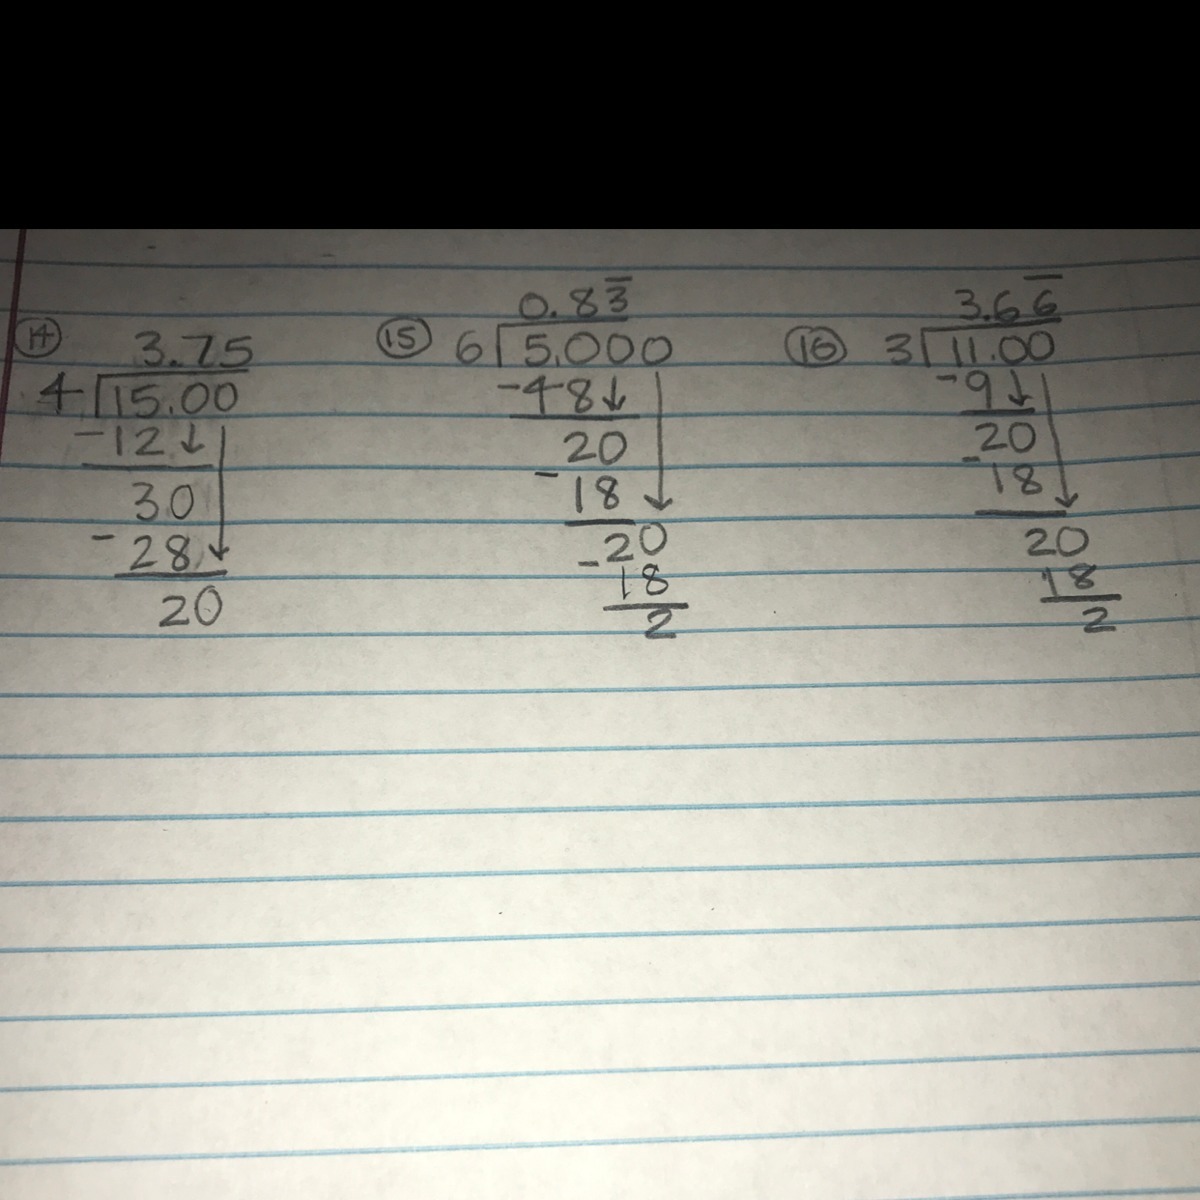 14
3.75
4 15.00
-12↓
30
- 28↓
20
15
0.83̅
6 5.000
-48↓
20
- 18
-20
18
2
16
3.66̅
3 11.00
-9↓
20
- 18
20
18
2